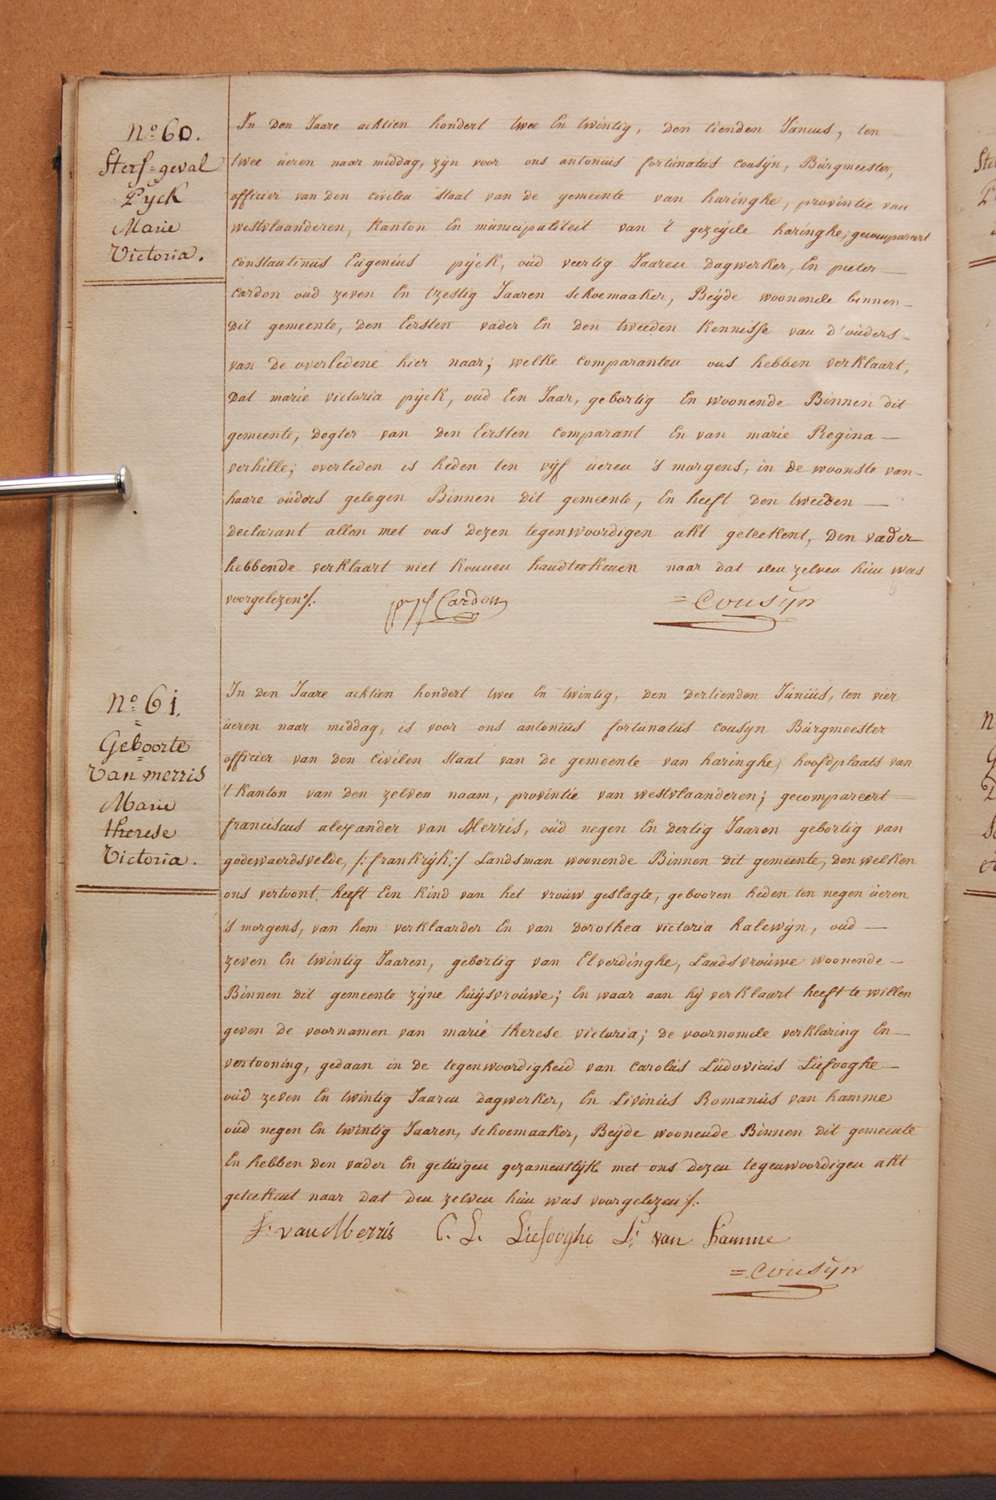 N.o 60.
Sterf=geval
Pÿck
Marie
Victoria.
In den Jaare achtien hondert twee En twintig, den tienden Junius, ten
twee ueren naar middag, zÿn voor ons antonius fortunatus cousÿn, Burgmeester,
officier van den civilen staat van de gemeente van haringhe, provintie van
westvlaanderen, Kanton En municipaliteit van 't gezeÿde haringhe, gecompareert
constantinus Eugenius pÿck, oud veertig Jaaren dagwerker, En pieter
cardon oud zeven En tzestig Jaaren schoemaaker, Beÿde woonende binnen
dit gemeente, den Eersten vader En den tweeden Kennisse van d'ouders
van de overledene hier naar; welke comparanten ons hebben verklaart,
Dat marie victoria pÿck, oud Een Jaar, gebortig En woonende Binnen dit
gemeente, dogter van den Eersten comparant En van marie Regina
verhille; overleden is heden ten vÿf ueren 's morgens, in de woonste van
haare ouders gelegen Binnen dit gemeente, En heeft den tweeden
declarant allen met ons dezen tegenwoordigen akt geteekent, Den vader
hebbende verklaart niet konnen handteekenen naar dat den zelven hun was
voorgelezen/.
Cardon
=Cousÿn
N.o 61.
Geboorte
Van merris
Marie
therese
Victoria.
In den Jaare achtien hondert twee En twintig, den dertienden Junius, ten vier
ueren naar middag, is voor ons antonius fortunatus cousyn Burgmeester
officier van den civilen staat van de gemeente van haringhe, hoofdplaats van
't Kanton van den zelven naam, provintie van westvlaanderen; gecompareert
franciscus alexander van Merris, oud negen En dertig Jaaren gebortig van
godewaersvelde, /: frankrÿk :/ Landsman woonende Binnen dit gemeente, den welken
ons vertoont heeft Een kind van het vrouw geslagte, gebooren heden ten negen ueren
's morgens, van hem verklaarder En van Dorothea victoria halewÿn, oud
zeven En twintig Jaaren, gebortig van Elverdinghe, Landsvrouwe woonende
Binnen dit gemeente zÿne huÿsvrouwe; En waar aan hÿ verklaart heeft te willen
geven de voornamen van marie therese victoria; de voornomde verklaring En
vertooning, gedaan in de tegenwoordigheid van carolus Ludovicus Liefooghe
oud zeven En twintig Jaaren dagwerker, En Livinus Romanus van hamme
oud negen En twintig Jaaren, schoemaaker, Beÿde woonende Binnen dit gemeente
En hebben den vader En getuigen gezamentlÿk met ons dezen tegenwoordigen akt
geteekent naar dat den zelven hun was voorgelezen/.
f: van Merris C. L. Liefooghe L: van hamme
=Cousÿn